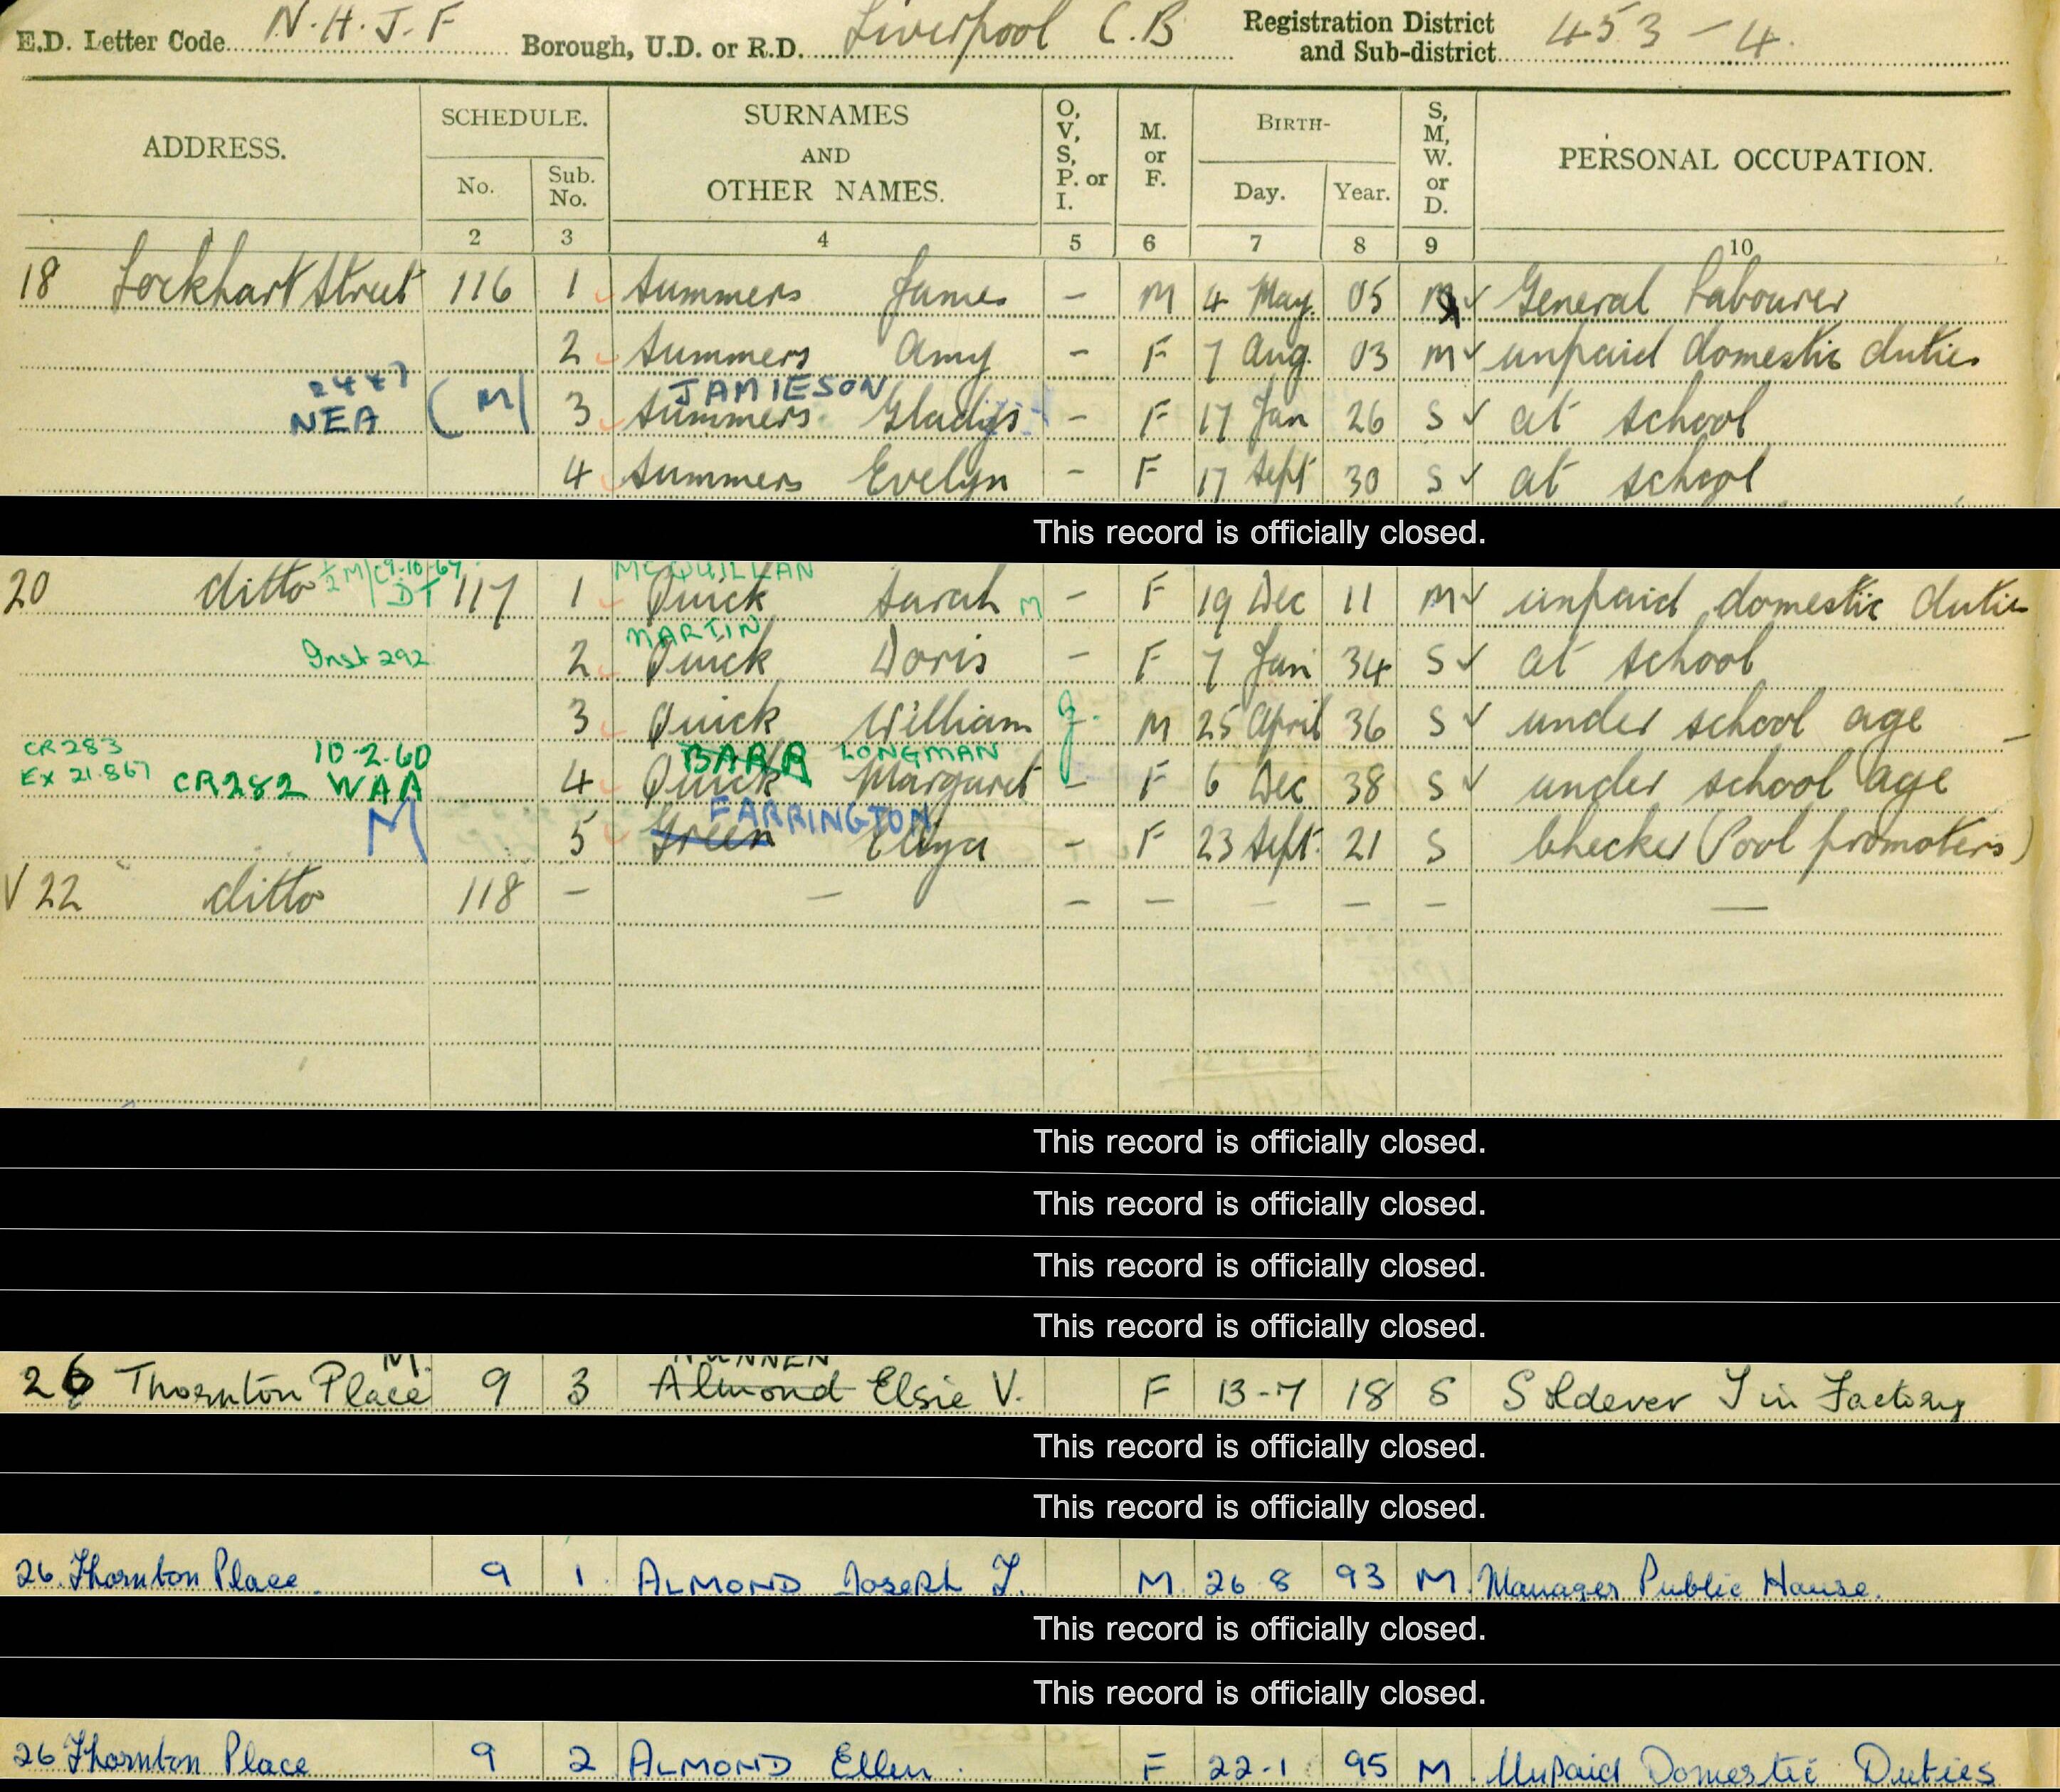 E.D. Letter Code N.H.J.F Borough, U.D. or R.D. Liverpool C.B Registration District and Sub-district 453-4.
ADDRESS. SCHEDULE. No. Sub. No. SURNAMES AND OTHER NAMES. O, V, S, P. or I. M. or F. BIRTH- Day. Year. S, M, W. or D. PERSONAL OCCUPATION.
1 2 3 4 5 6 7 8 9 10
18 Lockhart Street 116 1 Summers James - M 4 May 05 M General Labourer
2 Summers Amy - F 7 Aug 03 M unpaid domestic duties
JAMIESON
NEA (M) 3 Summers Gladys - F 17 Jan 26 S at school
4 Summers Evelyn - F 17 Sept 30 S at school
This record is officially closed.
MCQUILLAN
20 ditto DT 117 1 Quick Sarah M - F 19 Dec 11 M unpaid domestic duties
MARTIN
Inst 292 2 Quick Doris - F 7 Jan 34 S at school
3 Quick William M 25 April 36 S under school age
CR283 10-2-60 BARR LONGMAN
Ex 21.867 CR282 WAA 4 Quick Margaret - F 6 Dec 38 S under school age
FARRINGTON
M 5 Green - F 23 Sept. 21 S Checker (Pool promoters)
V 22 ditto 118 - - - - - - - -
This record is officially closed.
This record is officially closed.
This record is officially closed.
This record is officially closed.
M.
26 Thornton Place 9 3 Almond Elsie V. F 13-7 18 S Solderer Tin Factory
This record is officially closed.
This record is officially closed.
26 Thornton Place. 9 1 ALMOND Joseph F. M. 26.8 93 M. Manager Public House.
This record is officially closed.
This record is officially closed.
26 Thornton Place 9 2 ALMOND Ellen. F 22-1 95 M. Unpaid Domestic Duties